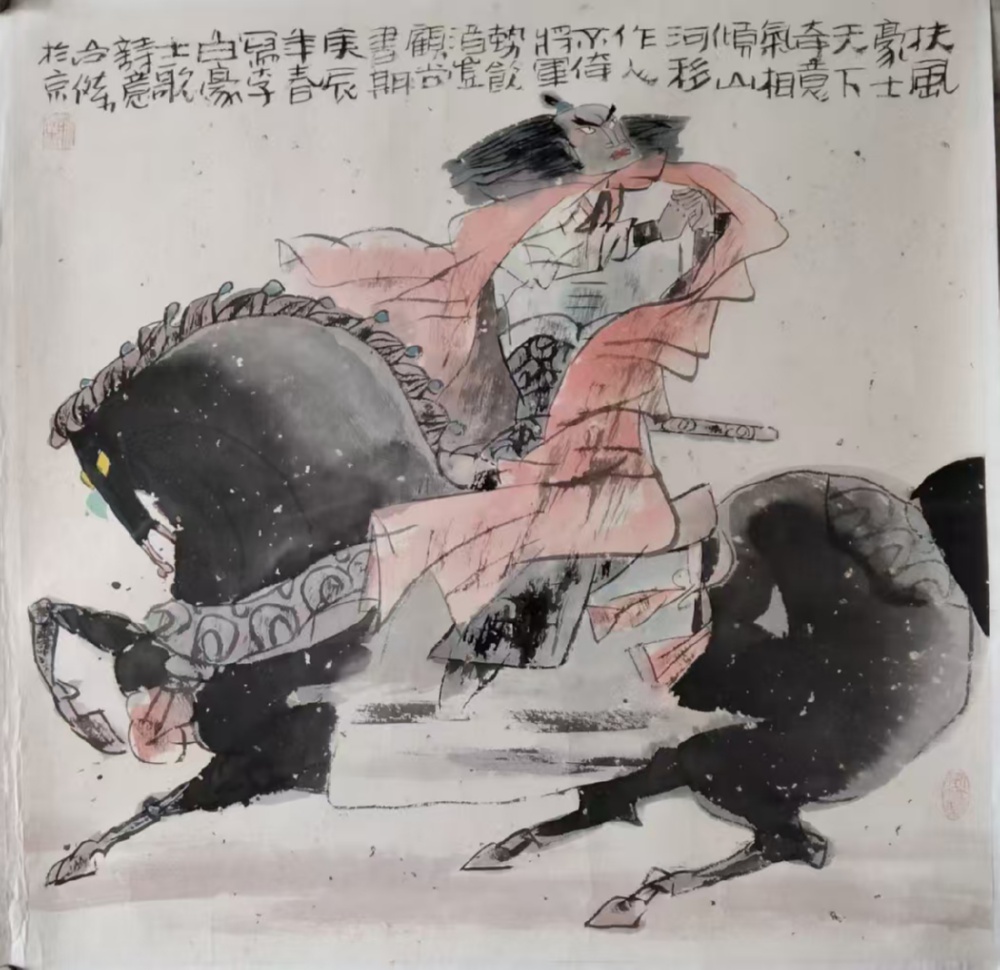 扶風
豪士
天下
奇意
氣相
傾山
河移
作人
不倚
將軍
勢飲
酒豈
顧尚
書期
庚辰
年春
寫李
白豪
士歌
詩意
傑
於京